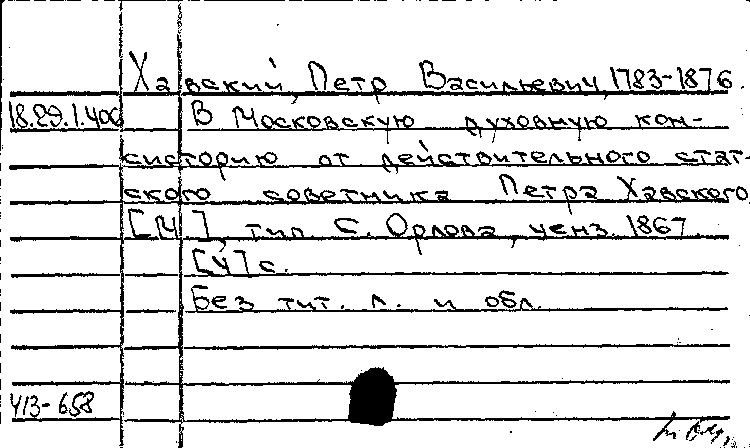 Хавский, Петр Васильевич, 1783-1876.
18.29.1.400 В Московскую духовную кон-
систорию от действительного стат-
ского советника Петра Хавского
[М], тип. С. Орлова, ценз. 1867.
[4] с.
Без тит. л. и обл.
413-658